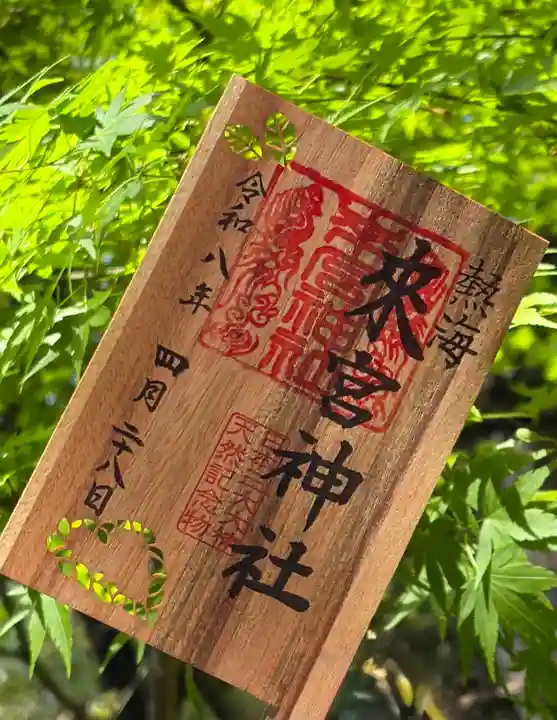 熱海
來宮神社
來宮神社
日本三大大楠
天然記念物
令和八年
四月二十八日